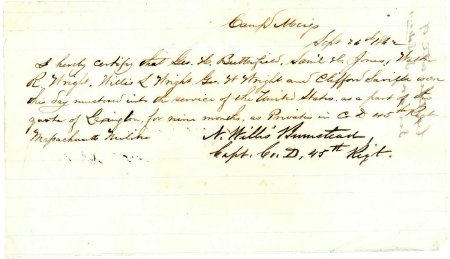 Camp Meigs
Sept 26th 1862
I hereby certify that Geo. H. Butterfield, Sam'l H. Jones, Walter
R. Wright, Willis L Wright, Geo. W Wright and Clifford were
this day mustered into the service of the United States, as a part of the
quota of Lexington, for nine months, as Privates in C D 45th Regt
Massachusetts Militia
N. Willis Bumstead,
Capt. Co. D, 45th Regt.